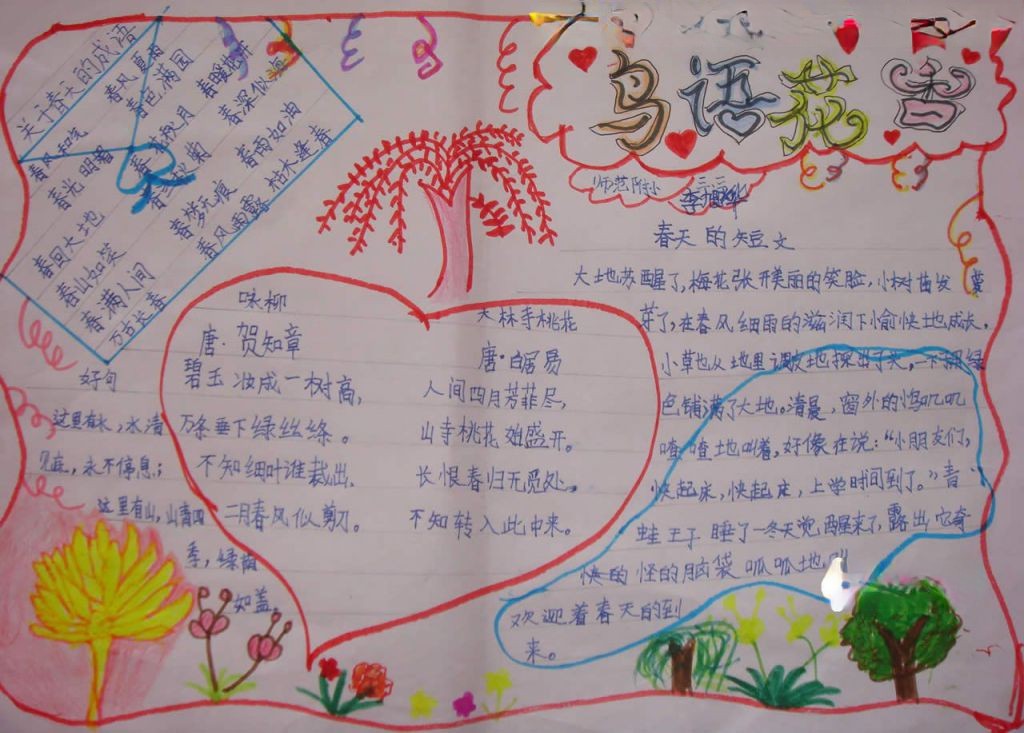 鸟语花香
师范附小
春天的短文
大地苏醒了，梅花张开美丽的笑脸，小树苗发
芽了，在春风细雨的滋润下愉快地成长。
小草也从地里调皮地探出了头，一不 绿
色铺满了大地。清晨，窗外的鸟叽叽
喳喳地叫着，好像在说：“小朋友们，
快起床，快起床，上学时间到了。”青
蛙王子睡了一冬天觉醒来了，露出它奇
怪的脑袋呱呱地
欢迎着春天的到
来。
关于春天的成语
春风和气
春光明媚
春回大地
春山如笑
春满人间
万古长春
春风
春色满园
春 秋月
春兰秋菊
春梦无痕
春风雨露
春暖花开
春深似海
春雨如油
枯木逢春
咏柳
唐·贺知章
碧玉妆成一树高，
万条垂下绿丝绦。
不知细叶谁裁出，
二月春风似剪刀。
大林寺桃花
唐·白居易
人间四月芳菲尽，
山寺桃花始盛开。
长恨春归无觅处，
不知转入此中来。
好句
这里有水，水清
见底，永不停息；
这里有山，山青四
季，绿荫
如盖。